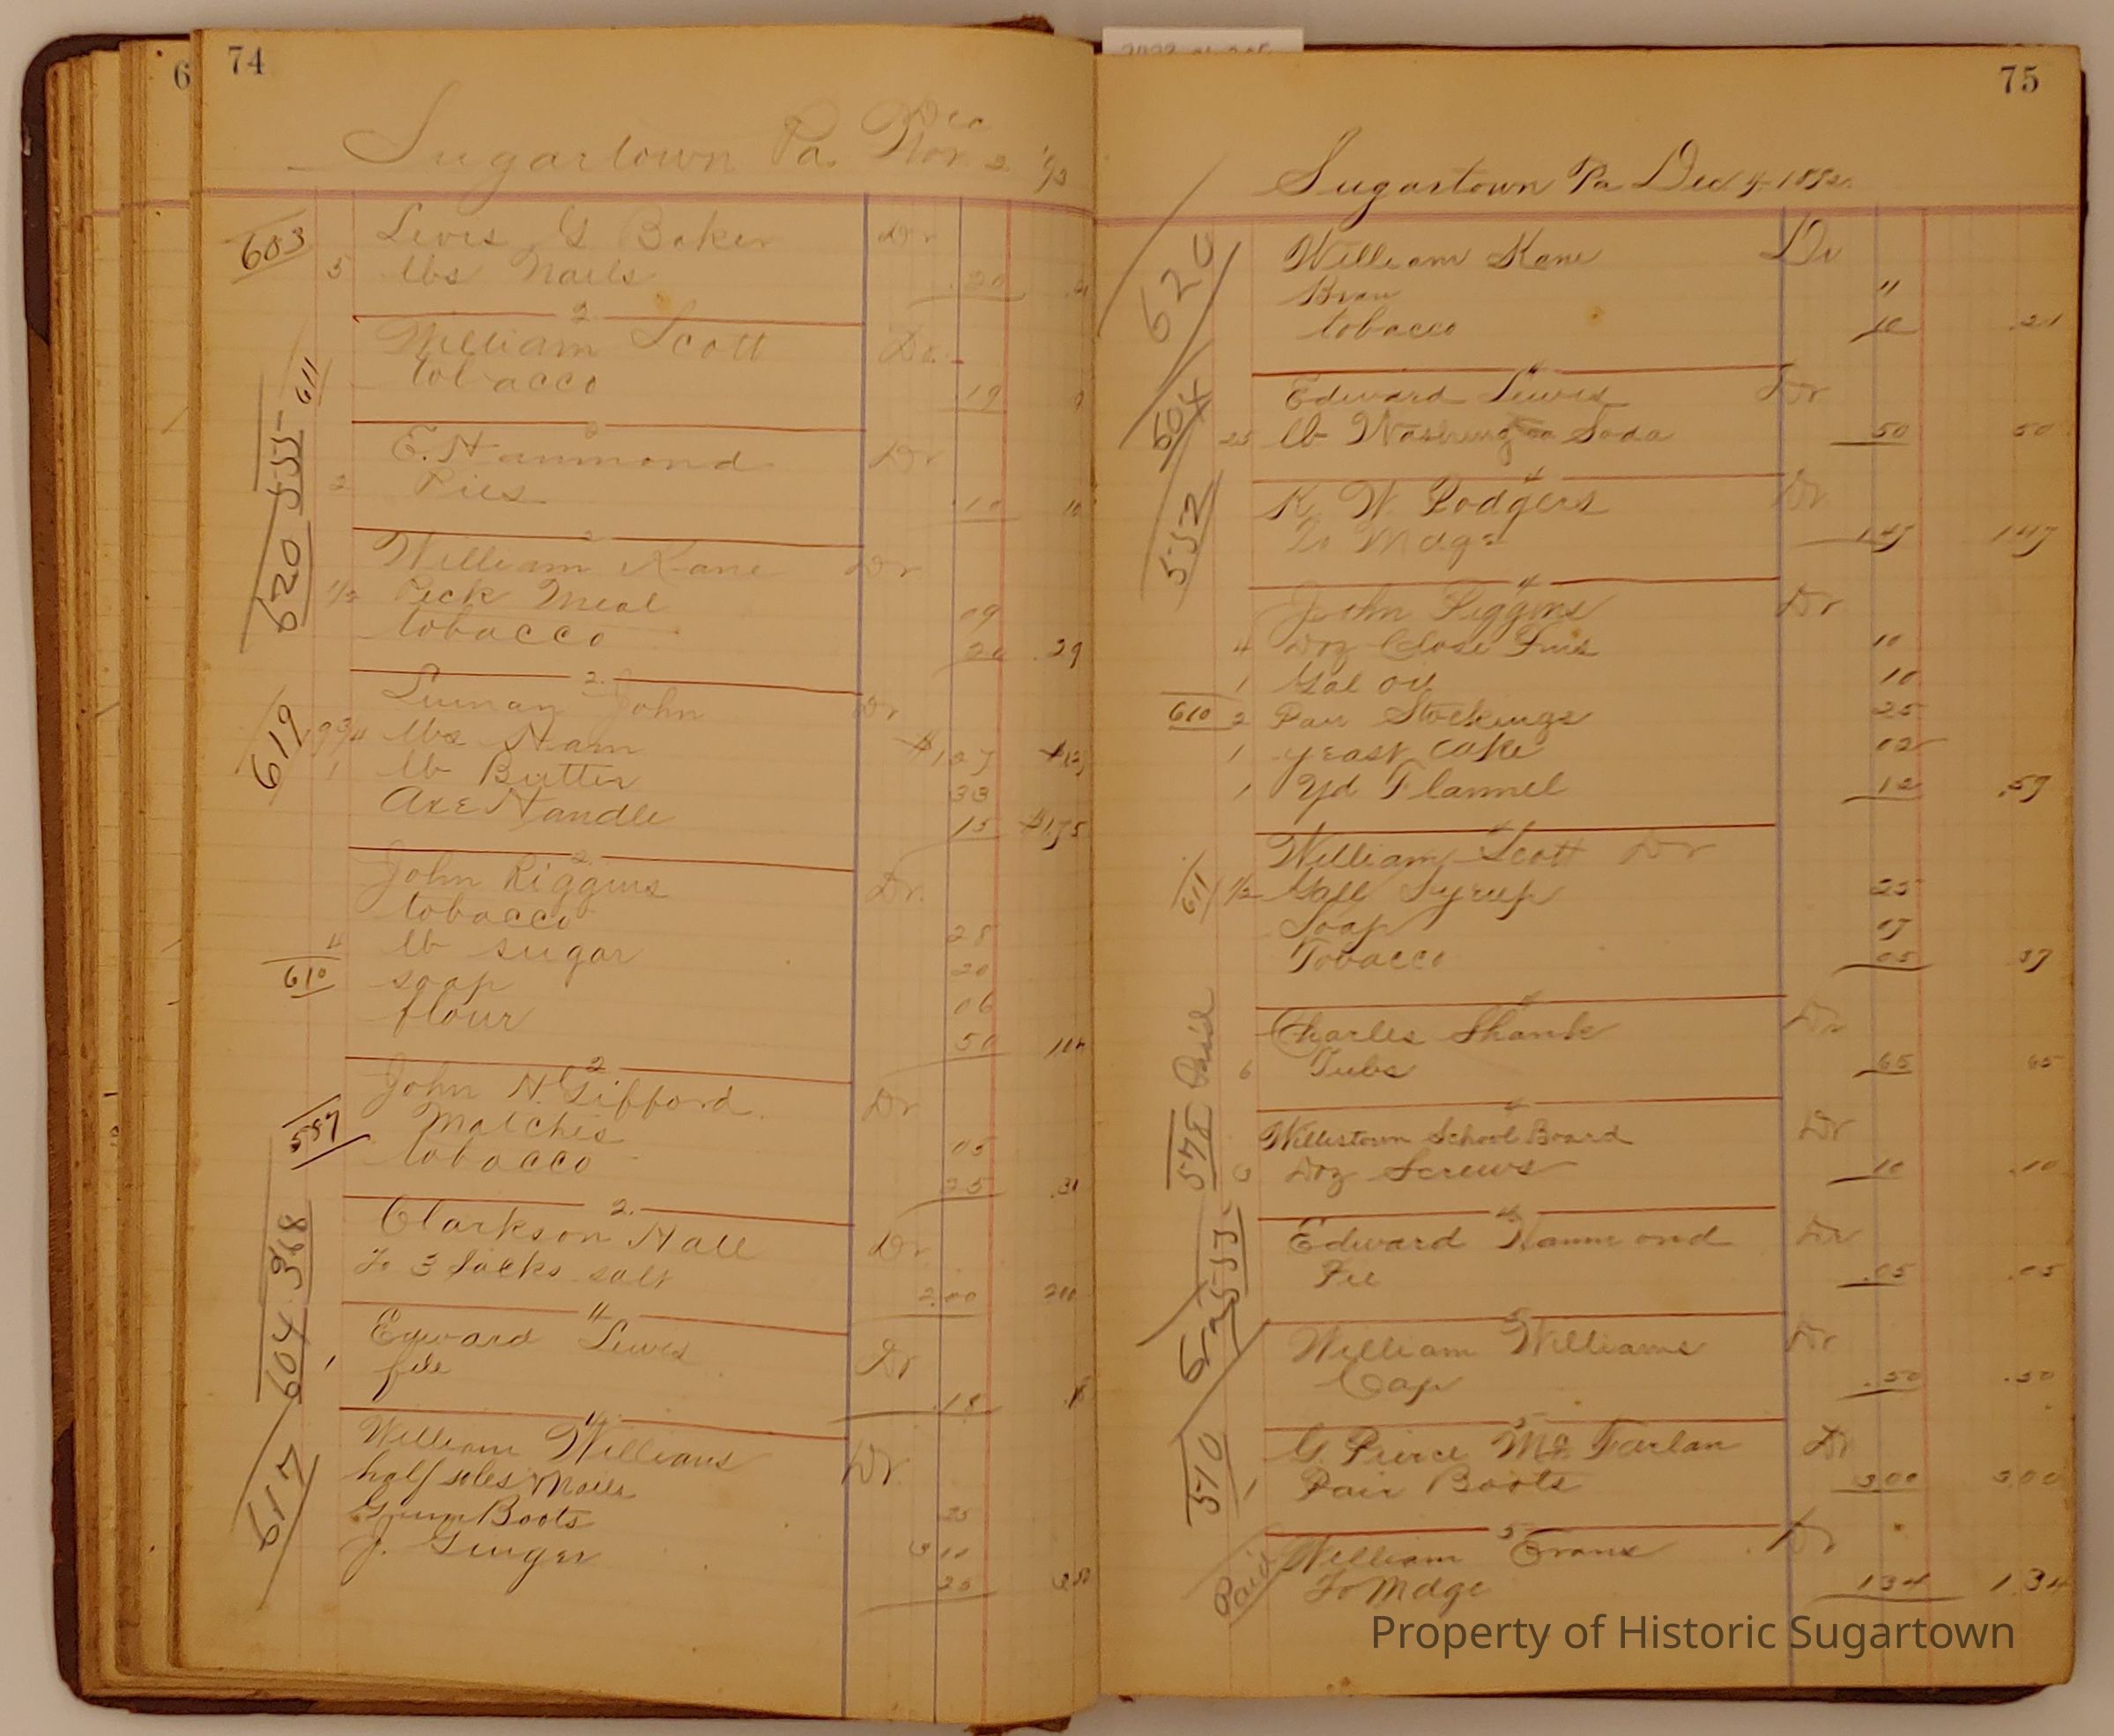 6
74
Sugartown Pa. Nov. 2 '92
Dec
603
Levis G Baker Dr
5 lbs Nails .20
2
611
William Scott Dr.
tobacco 19
555
E. Hammond Dr
2 Pies .10 10
2
620
William Kane Dr
1/2 Peck Meal 09
tobacco 20 .29
2.
619
Luman John Dr
9 3/4 lbs Ham $1 27
1 lb Butter 33
Axe Handle 15 $1.75
2.
John Riggins Dr.
tobacco 28
4 lb sugar 20
610
soap 06
flour 50 104
2
John H. Gifford. Dr
587
Matches 05
tobacco 25 .31
2.
368
Clarkson Hall Dr
To 3 Sacks salt 2.00 200
4
604
Edward Lewis Dr
1 file .18 .18
4
617
William Williams Dr.
half soles & Nails 25
Gum Boots 3 00
J. Ginger 25 3 50
75
Sugartown Pa Dec 4-1892.
620
William Kane Dr
Bran "
tobacco 10 .21
4
604
Edward Lewis Dr
25 lb Washing Soda 50 50
4
532
K. W. Rodgers Dr
To Mdge 147 147
4
John Riggins Dr
4 Doz Close Pins 10
1 Gal oil 10
610
2 Pair Stockings 25
1 yeast cake 02
1 Yd Flannel 12 .59
4
611
William Scott Dr
1/2 Gall Syrup 25
Soap 07
Tobacco 05 37
4
Paid
Charles Shank Dr
6 Tubs 65 65
4
578
Willistown School Board Dr
Doz Screws 10 .10
4
555
Edward Hammond Dr
Pie .05 .05
5
William Williams Dr
Cap .50 .50
5
510
G. Pierce Mc Farlan Dr
1 Pair Boots 300 300
5
Paid
William Evans Dr
To Mdge 134 1.34
Property of Historic Sugartown